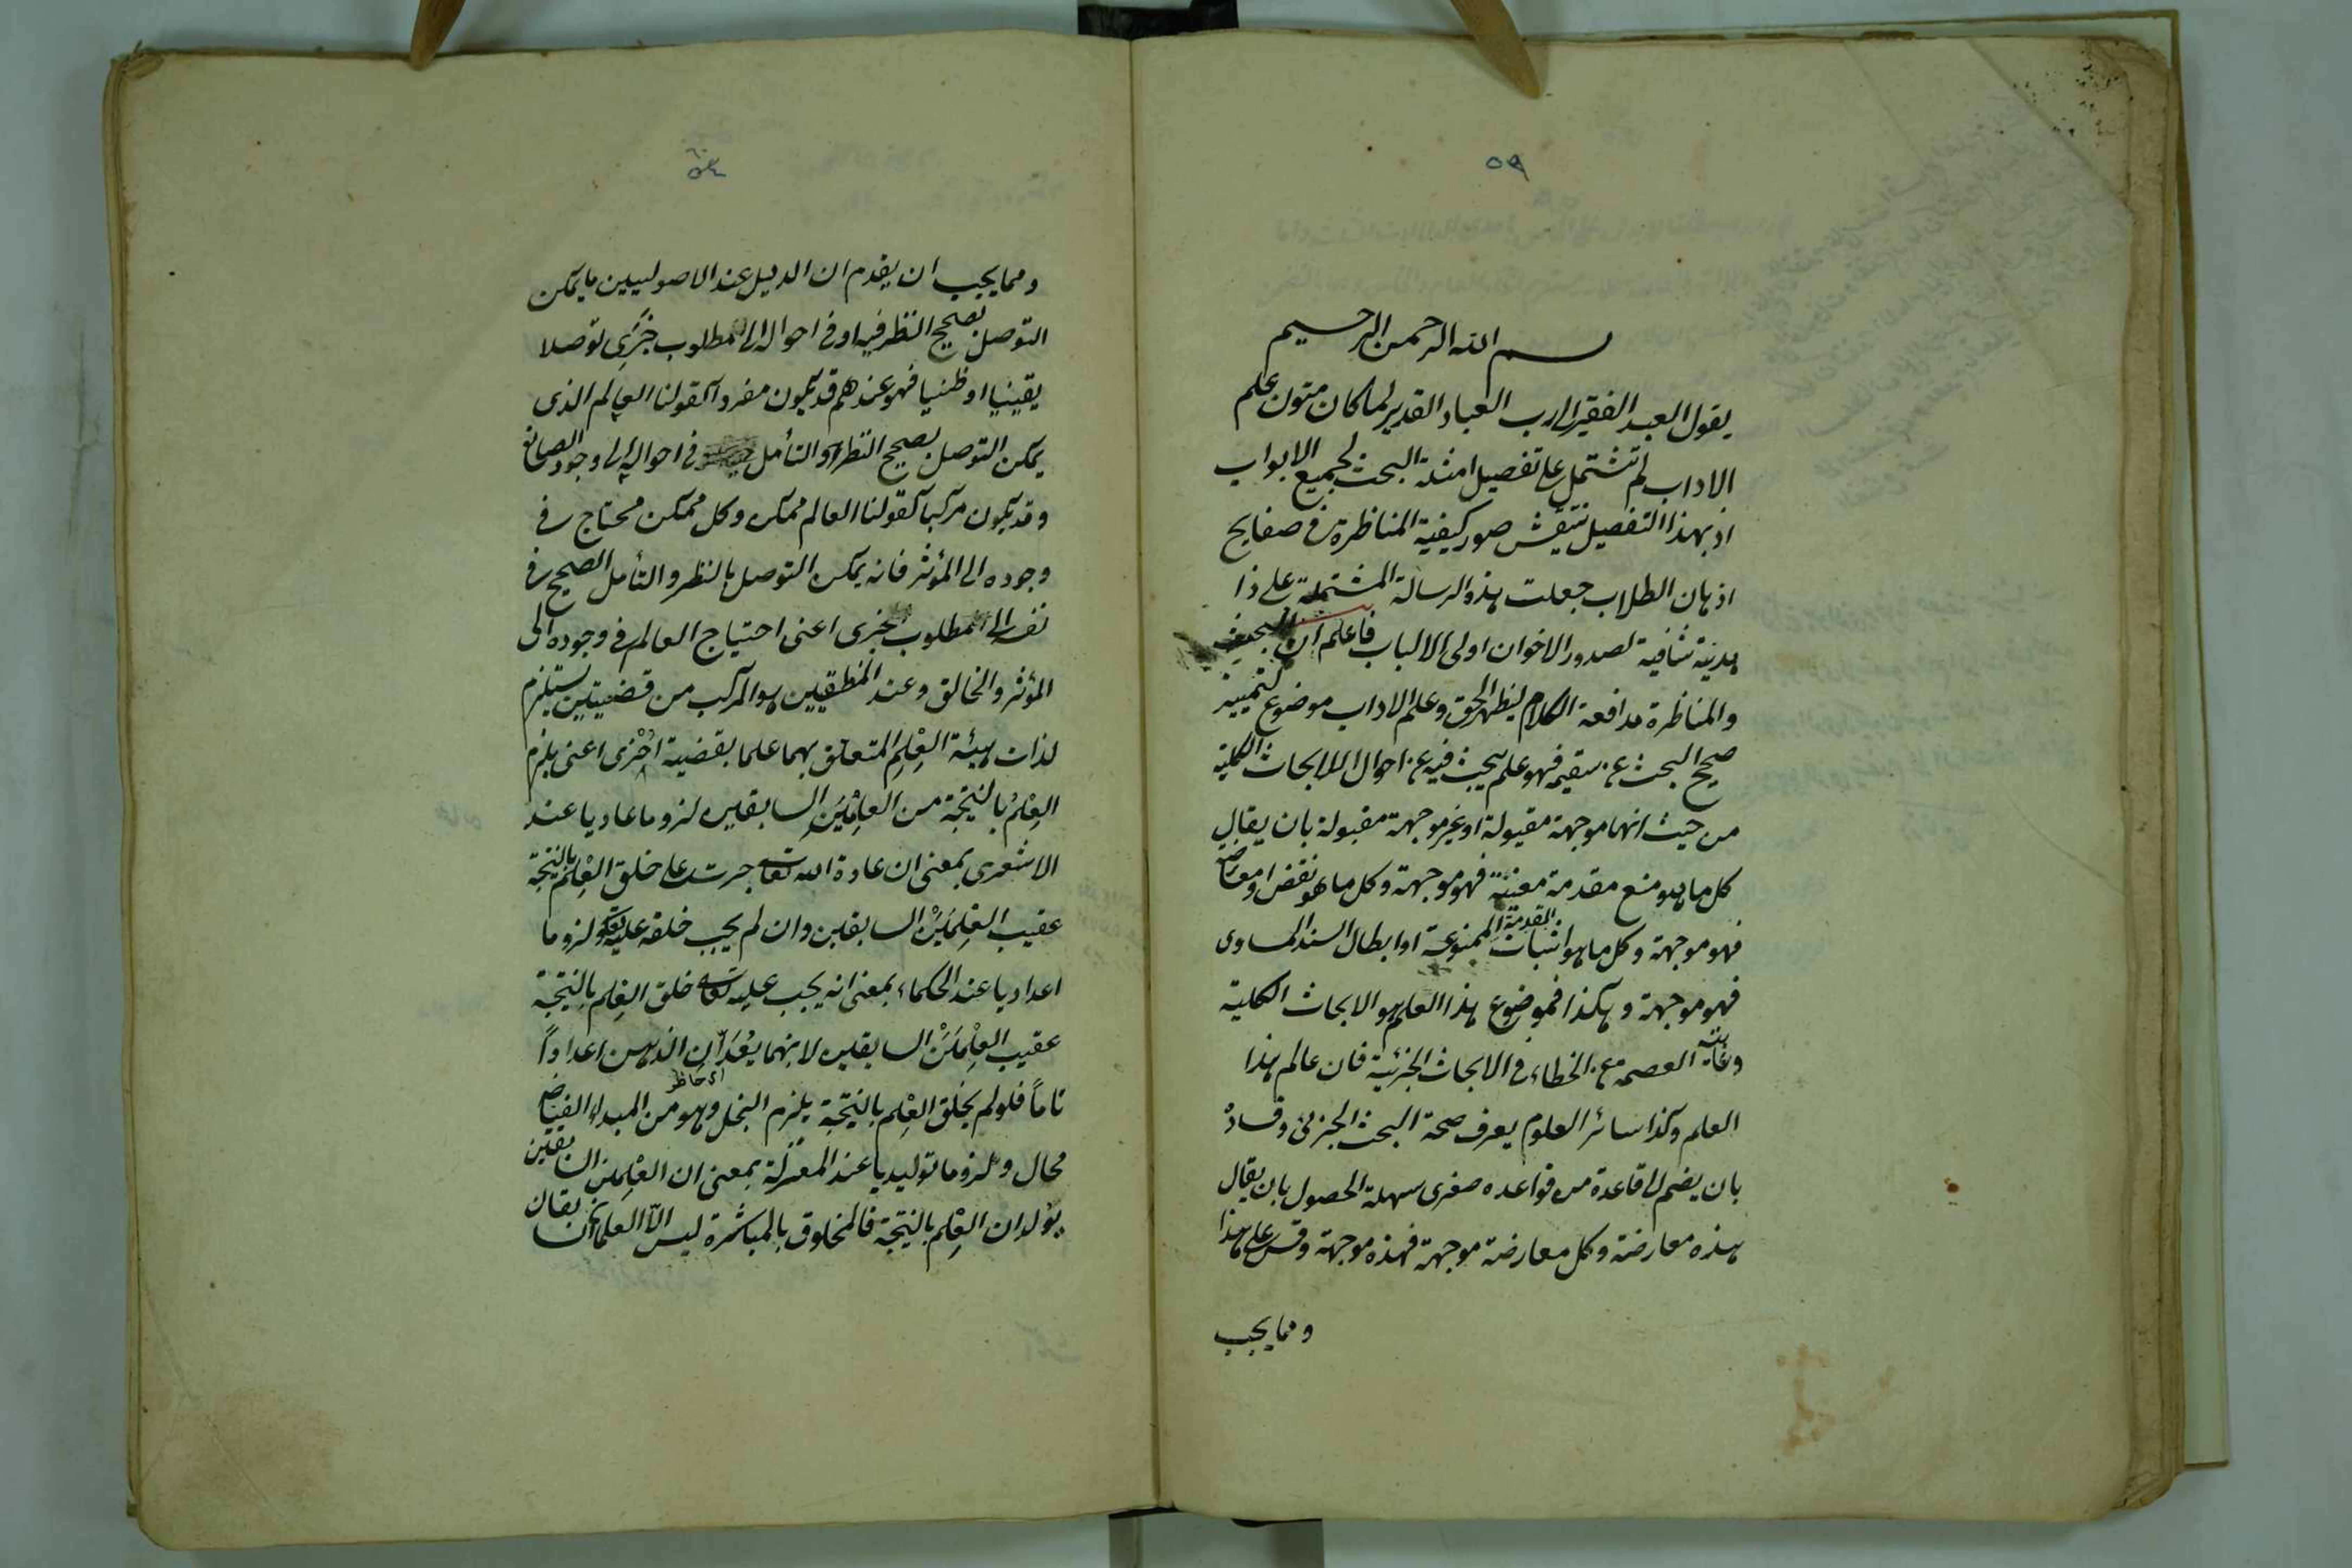 ٥٩
بسم الله الرحمن الرحيم
يقول العبد الفقير الى رب العباد القدير لما كان متون علم
الاداب لم تشتمل على تفصيل امثلة البحث لجميع الابواب
اذ بهذا التفصيل تنتقش صور كيفية المناظرة فى صفايح
اذهان الطلاب جعلت هذه الرسالة المشتملة على ذا
هدية شافية لصدور الاخوان اولى الالباب فاعلم ان البحث
والمناظرة مدافعة الكلام ليظهر الحق وعلم الاداب موضوع لتمييز
صحيح البحث عن سقيمه فهو علم يبحث فيه عن احوال الابحاث الكلية
من حيث انها موجهة مقبولة او غير موجهة مقبولة بان يقال
كل ما هو منع مقدمة معينة فهو موجهة وكل ما هو نقض او معارضة
فهو موجهة وكل ما هو اثبات المقدمة الممنوعة او ابطال السند المساوى
فهو موجهة وهكذا فموضوع هذا العلم هو الابحاث الكلية
وغايته العصمة عن الخطاء فى الابحاث الجزئية فان عالم هذا
العلم وكذا سائر العلوم يعرف صحة البحث الجزئى وفساده
بان يضم الى قاعدة من قواعده صغرى سهلة الحصول بان يقال
هذه معارضة وكل معارضة موجهة فهذه موجهة وقس على هذا
ومما يجب
٦٠
ومما يجب ان يقدم ان الدليل عند الاصوليين ما يمكن
التوصل بصحيح النظر فيه او فى احواله الى مطلوب خبرى توصلا
يقينيا او ظنيا فهو عندهم قد يكون مفردا كقولنا العالم الذى
يمكن التوصل بصحيح النظر والتأمل فى احواله الى وجود الصانع
وقد يكون مركبا كقولنا العالم ممكن وكل ممكن محتاج فى
وجوده الى المؤثر فانه يمكن التوصل بالنظر والتأمل الصحيح فى
نفسه الى المطلوب الخبرى اعنى احتياج العالم فى وجوده الى
المؤثر والخالق وعند المنطقيين هو المركب من قضيتين يستلزم
لذات هيئة العِلْمِ المتعلق بهما علما بقضية اُخْرى اعنى يلزم
العِلْمُ بالنتيجة من العِلْمَيْنِ السابقين لزوما عاديا عند
الاشعرى بمعنى ان عادة الله تعالى جرت على خلق العِلْم بالنتيجة
عقيب العِلْمَيْنْ السابقين وان لم يجب خلقه عليه تعالى ولزوما
اعداديا عند الحكماء بمعنى انه يجب عليه تعالى خلق العِلم بالنتيجة
عقيب العِلْمَيْنْ السابقين لانهما يُعَدّان الذهن اعداداً
تاماً فلو لم يخلق العِلْم بالنتيجة يلزم البخل وهو من المبداء الفياض
محال ولزوما توليديا عند المعتزلة بمعنى ان العِلْمين السابقين
يولدان العِلْم بالنتيجة فالمخلوق بالمباشرة ليس الّا العلمان السابقان